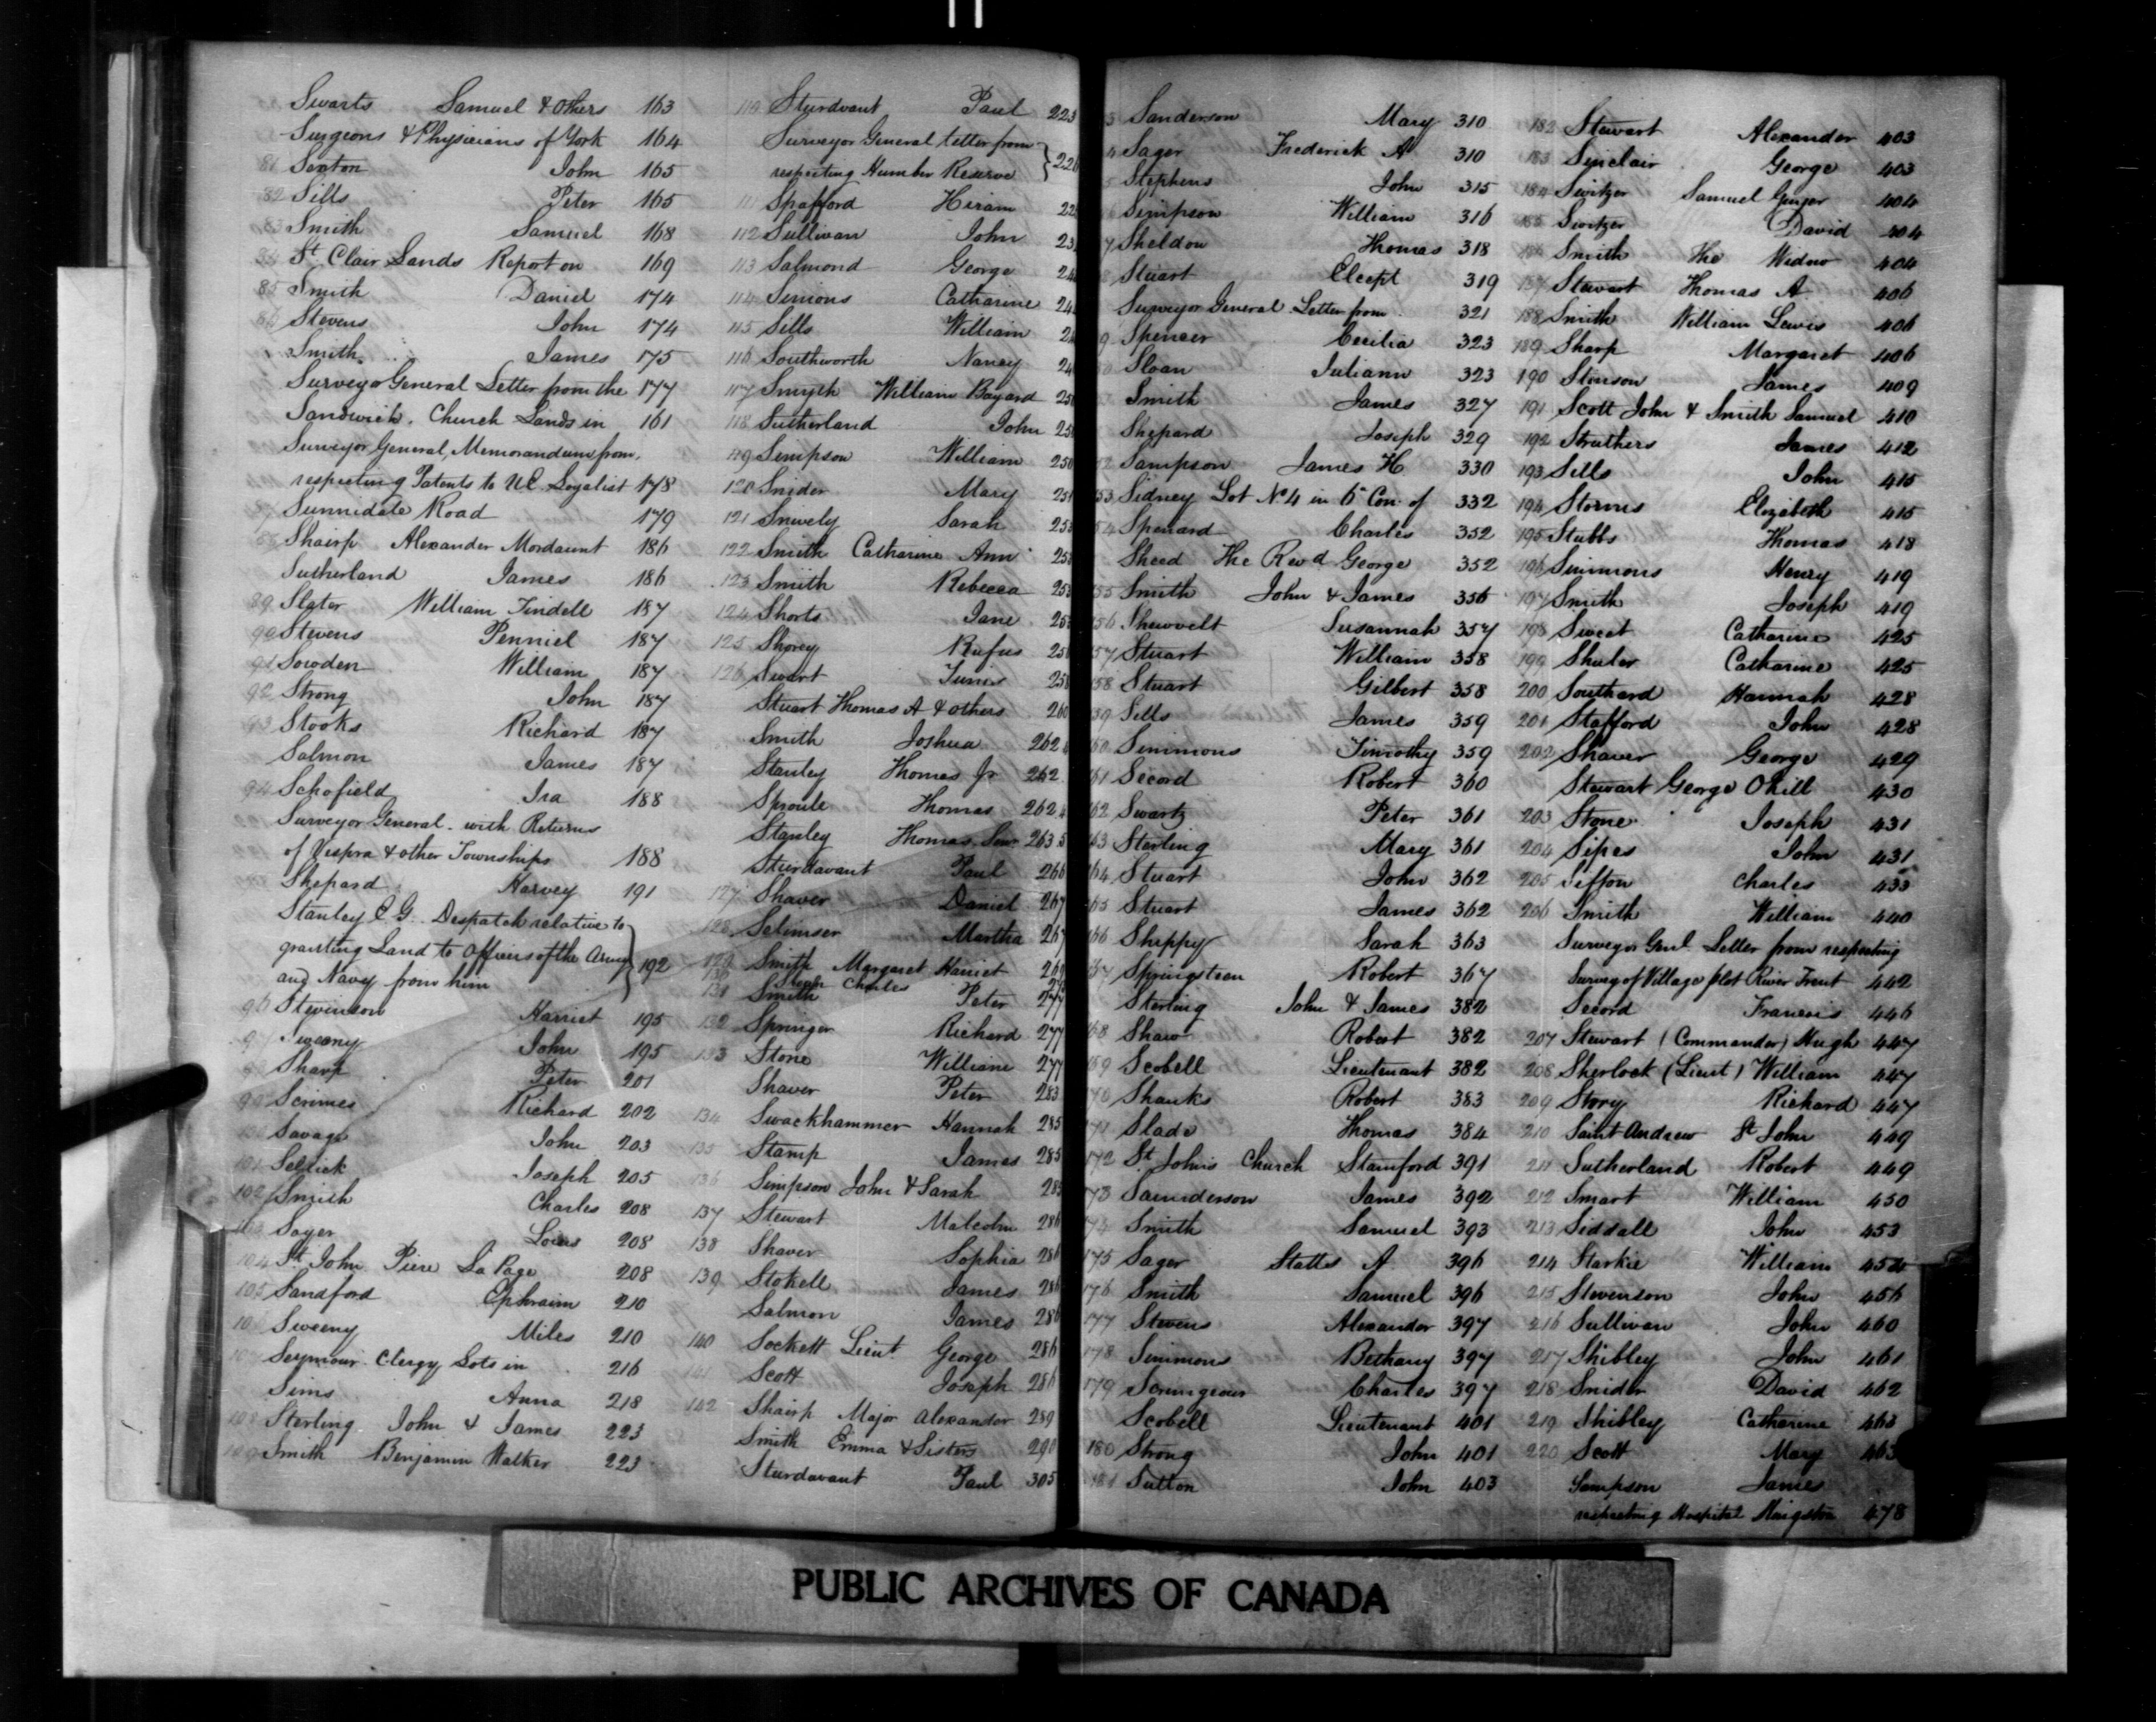 Swarts Samuel & Others 163
Surgeons & Physicians of York 164
81 Sexton John 165
82 Sills Peter 165
83 Smith Samuel 168
84 St Clair Lands Report on 169
85 Smith Daniel 174
Stevens John 174
Smith James 175
Surveyor General Letter from the 177
Sandwich, Church Lands in 161
Surveyor General, Memorandum from,
respecting Patents to UE Loyalist 178
87 Sunnidale Road 179
88 Shairp Alexander Mordaunt 186
Sutherland James 186
89 Slater William Tindell 187
90 Stevens Penniel 187
91 Sowden William 187
92 Strong John 187
93 Stooks Richard 187
Salmon James 187
94 Schofield Ira 188
Surveyor General with Returns
of Vespra & other Townships 188
Shepard Harvey 191
Stanley E G. Despatch relative to
granting Land to Officers of the Army
and Navy from him 192
96 Stevinson Harriet 195
97 Sweeny John 195
98 Sharp Peter 201
99 Scrimes Richard 202
100 Savage John 203
101 Sellick Joseph 205
102 Smith Charles 208
103 Sayer Louis 208
104 St John Piere La Page 208
105 Sandford Ephraim 210
106 Sweeny Miles 210
107 Seymour Clergy Lots in 216
Sims Anna 218
108 Sterling John & James 223
109 Smith Benjamin Walker 223
110 Sturdvant Paul 223
Surveyor General letter from
respecting Humber Reserve 226
111 Spafford Hiram 22
112 Sullivan John 23
113 Salmond George 24
114 Simons Catharine 24
115 Sills William 2
116 Southworth Nancy 24
117 Smyth William Bayard 25
118 Sutherland John 25
119 Simpson William 250
120 Snider Mary 251
121 Snively Sarah 253
122 Smith Catharine Ann 253
123 Smith Rebecca 253
124 Shorts Jane 253
125 Shorey Rufus 25
126 Swart Tunis 258
Stuart Thomas A & others 260
Smith Joshua 262
Stanley Thomas Jr 262
Sproule Thomas 262
Stanley Thomas Senr 263
Sturdavant Paul 266
127 Shaver Daniel 267
128 Selimser Martha 267
129 Smith Margaret Harriet 269
130 Charles
131 Smith Peter 277
132 Springer Richard 277
133 Stone William 277
Shaver Peter 283
134 Swackhammer Hannah 285
135 Stamp James 285
136 Simpson John & Sarah 285
137 Stewart Malcolm 286
138 Shaver Sophia 286
139 Stokell James 286
Salmon James 286
140 Sockett Lieut George 286
141 Scott Joseph 286
142 Shairp Major Alexander 289
Smith Emma & Sisters 290
Sturdavant Paul 305
3 Sanderson Mary 310
4 Sager Frederick A 310
5 Stephens John 315
6 Simpson William 316
7 Sheldon Thomas 318
8 Stuart Elcept 319
Surveyor General Letter from 321
9 Spencer Cecilia 323
Sloan Juliann 323
Smith James 327
Shepard Joseph 329
52 Sampson James H 330
53 Sidney Lot No 4 in 6 Con. of 332
54 Spenard Charles 352
Sheed The Revd George 352
55 Smith John & James 356
56 Shewvelt Susannah 357
57 Stuart William 358
58 Stuart Gilbert 358
59 Sills James 359
60 Simmons Timothy 359
61 Secord Robert 360
62 Swartz Peter 361
63 Sterling Mary 361
64 Stuart John 362
65 Stuart James 362
66 Shippy Sarah 363
67 Springsteen Robert 367
Sterling John & James 382
68 Shaw Robert 382
69 Scobell Lieutenant 382
70 Shanks Robert 383
71 Slade Thomas 384
172 St John's Church Stamford 391
73 Saunderson James 392
74 Smith Samuel 393
175 Sager Statts A 396
176 Smith Samuel 396
177 Stevens Alexander 397
178 Simmons Bethany 397
179 Scrimgeour Charles 397
Scobell Lieutenant 401
180 Strong John 401
181 Sutton John 403
182 Stewart Alexander 403
183 Sinclair George 403
184 Switzer Samuel 404
185 Switzer David 404
186 Smith The Widow 404
187 Stewart Thomas A 406
188 Smith William Lewis 406
189 Sharp Margaret 406
190 Stinson James 409
191 Scott John & Smith Samuel 410
192 Struthers James 412
193 Sills John 415
194 Storms Elizabeth 415
195 Stubbs Thomas 418
196 Simmons Henry 419
197 Smith Joseph 419
198 Sweet Catharine 425
199 Shuler Catharine 425
200 Southard Hannah 428
201 Stafford John 428
202 Shaver George 429
Stewart George Okill 430
203 Stone Joseph 431
204 Sipes John 431
205 Sifton Charles 433
206 Smith William 440
Surveyor Genl Letter from respecting
Survey of Village plot River Trent 442
Secord Francis 446
207 Stewart (Commander) Hugh 447
208 Sherlock (Lieut) William 447
209 Story Richard 447
210 Saint Andrew St John 449
211 Sutherland Robert 449
212 Smart William 450
213 Siddall John 453
214 Starkie William 454
215 Stevenson John 456
216 Sullivan John 460
217 Shibley John 461
218 Snider David 462
219 Shibley Catharine 463
220 Scott Mary 463
Sampson James
respecting Hospital Kingston 478
PUBLIC ARCHIVES OF CANADA